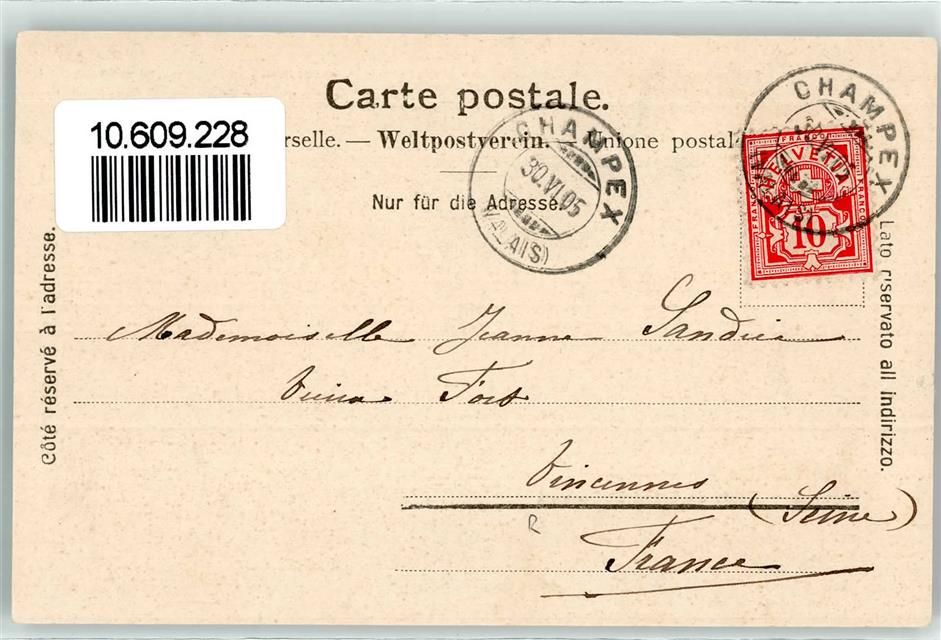 Carte postale.
10.609.228
rselle. — Weltpostverein. — Unione postal
Nur für die Adresse.
CHAMPEX
30.VI.05
(VALAIS)
CHAMPEX
FRANCO
HELVETIA
10
FRANCO
FRANCO
Côté réservé à l'adresse.
Lato riservato all indirizzo.
Mademoiselle Jeanne Sandier
Vieux Fort
Vincennes
(Seine)
R
France